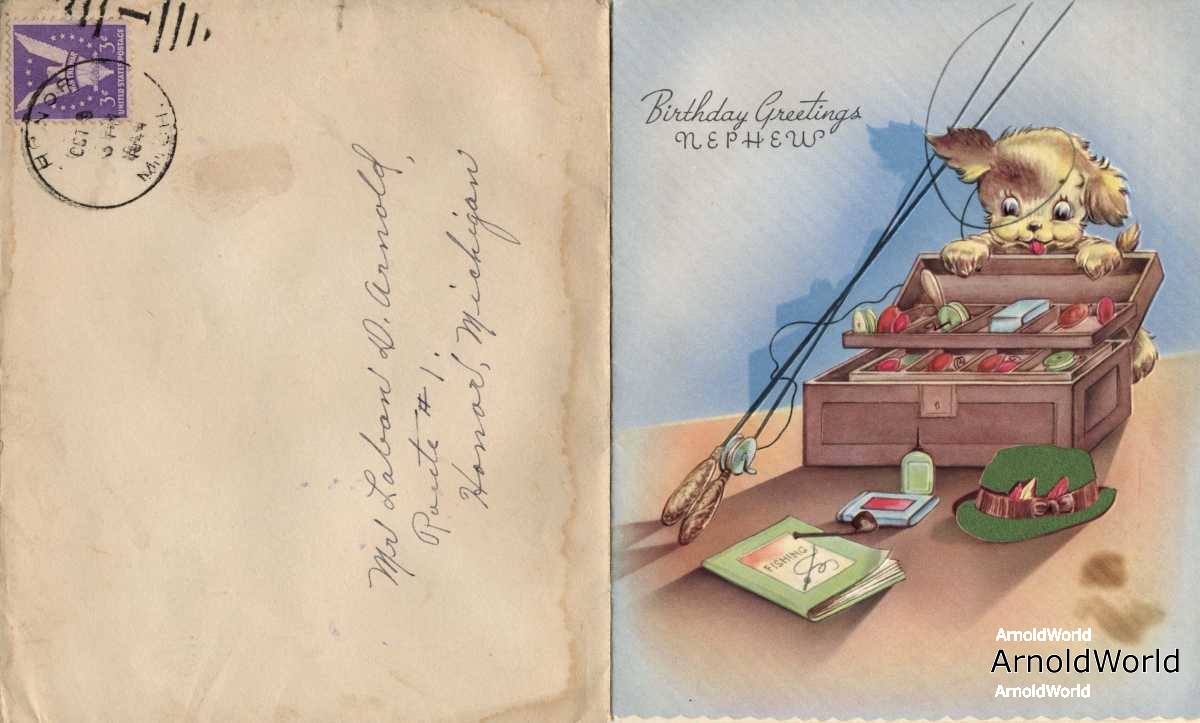 UNITED STATES POSTAGE
3¢
3¢
WIN THE WAR
HONOR
OCT 9
MICH.
Mr Laban D. Arnold,
Route #1,
Honor, Michigan
Birthday Greetings
NEPHEW
FISHING
ArnoldWorld
ArnoldWorld
ArnoldWorld